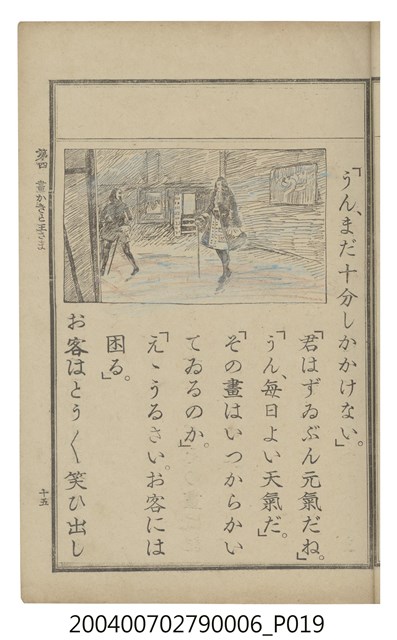 「うん、まだ十分しかかけない。」
「君はずゐぶん元氣だね。」
「うん、毎日よい天氣だ。」
「その畫はいつからかい
てゐるのか。」
「えゝうるさい。お客には
困る。」
お客はとう〳〵笑ひ出し
第四 畫かきと王さま
十五
200400702790006_P019